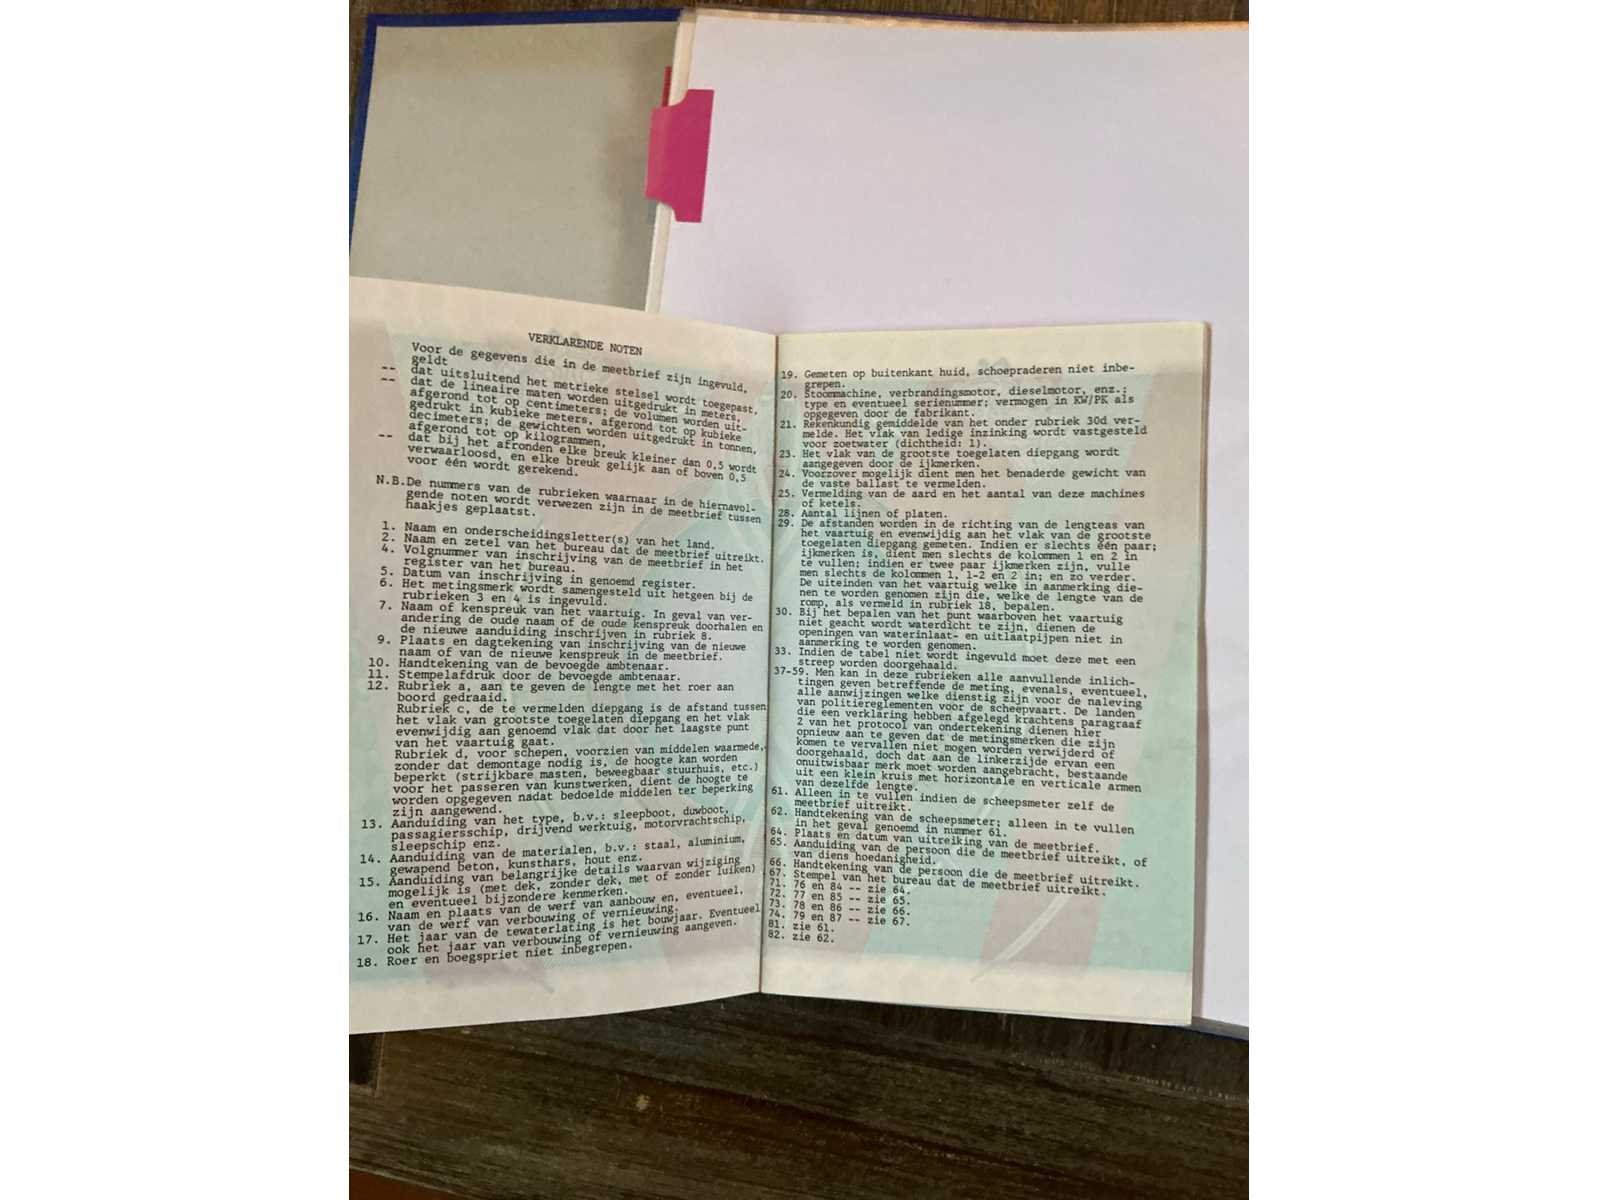 VERKLARENDE NOTEN
Voor de gegevens die in de meetbrief zijn ingevuld,
geldt
-- dat uitsluitend het metrieke stelsel wordt toegepast,
-- dat de lineaire maten worden uitgedrukt in meters,
afgerond tot op centimeters; de volumen worden uit-
gedrukt in kubieke meters, afgerond tot op kubieke
decimeters; de gewichten worden uitgedrukt in tonnen,
afgerond tot op kilogrammen,
-- dat bij het afronden elke breuk kleiner dan 0,5 wordt
verwaarloosd, en elke breuk gelijk aan of boven 0,5
voor één wordt gerekend.
N.B.De nummers van de rubrieken waarnaar in de hiernavol-
gende noten wordt verwezen zijn in de meetbrief tussen
haakjes geplaatst.
1. Naam en onderscheidingsletter(s) van het land.
2. Naam en zetel van het bureau dat de meetbrief uitreikt.
4. Volgnummer van inschrijving van de meetbrief in het
register van het bureau.
5. Datum van inschrijving in genoemd register.
6. Het metingsmerk wordt samengesteld uit hetgeen bij de
rubrieken 3 en 4 is ingevuld.
7. Naam of kenspreuk van het vaartuig. In geval van ver-
andering de oude naam of de oude kenspreuk doorhalen en
de nieuwe aanduiding inschrijven in rubriek 8.
9. Plaats en dagtekening van inschrijving van de nieuwe
naam of van de nieuwe kenspreuk in de meetbrief.
10. Handtekening van de bevoegde ambtenaar.
11. Stempelafdruk door de bevoegde ambtenaar.
12. Rubriek a, aan te geven de lengte met het roer aan
boord gedraaid.
Rubriek c, de te vermelden diepgang is de afstand tussen
het vlak van grootste toegelaten diepgang en het vlak
evenwijdig aan genoemd vlak dat door het laagste punt
van het vaartuig gaat.
Rubriek d, voor schepen, voorzien van middelen waarmede,
zonder dat demontage nodig is, de hoogte kan worden
beperkt (strijkbare masten, beweegbaar stuurhuis, etc.)
voor het passeren van kunstwerken, dient de hoogte te
worden opgegeven nadat bedoelde middelen ter beperking
zijn aangewend.
13. Aanduiding van het type, b.v.: sleepboot, duwboot,
passagiersschip, drijvend werktuig, motorvrachtschip,
sleepschip enz.
14. Aanduiding van de materialen, b.v.: staal, aluminium,
gewapend beton, kunsthars, hout enz.
15. Aanduiding van belangrijke details waarvan wijziging
mogelijk is (met dek, zonder dek, met of zonder luiken)
en eventueel bijzondere kenmerken.
16. Naam en plaats van de werf van aanbouw en, eventueel,
van de werf van verbouwing of vernieuwing.
17. Het jaar van de tewaterlating is het bouwjaar. Eventueel
ook het jaar van verbouwing of vernieuwing aangeven.
18. Roer en boegspriet niet inbegrepen.
19. Gemeten op buitenkant huid, schoepraderen niet inbe-
grepen.
20. Stoommachine, verbrandingsmotor, dieselmotor, enz.;
type en eventueel serienummer; vermogen in KW/PK als
opgegeven door de fabrikant.
21. Rekenkundig gemiddelde van het onder rubriek 30d ver-
melde. Het vlak van ledige inzinking wordt vastgesteld
voor zoetwater (dichtheid: 1).
23. Het vlak van de grootste toegelaten diepgang wordt
aangegeven door de ijkmerken.
24. Voorzover mogelijk dient men het benaderde gewicht van
de vaste ballast te vermelden.
25. Vermelding van de aard en het aantal van deze machines
of ketels.
28. Aantal lijnen of platen.
29. De afstanden worden in de richting van de lengteas van
het vaartuig en evenwijdig aan het vlak van de grootste
toegelaten diepgang gemeten. Indien er slechts één paar;
ijkmerken is, dient men slechts de kolommen 1 en 2 in
te vullen; indien er twee paar ijkmerken zijn, vulle
men slechts de kolommen 1, 1-2 en 2 in; en zo verder.
De uiteinden van het vaartuig welke in aanmerking die-
nen te worden genomen zijn die, welke de lengte van de
romp, als vermeld in rubriek 18, bepalen.
30. Bij het bepalen van het punt waarboven het vaartuig
niet geacht wordt waterdicht te zijn, dienen de
openingen van waterinlaat- en uitlaatpijpen niet in
aanmerking te worden genomen.
33. Indien de tabel niet wordt ingevuld moet deze met een
streep worden doorgehaald.
37-59. Men kan in deze rubrieken alle aanvullende inlich-
tingen geven betreffende de meting, evenals, eventueel,
alle aanwijzingen welke dienstig zijn voor de naleving
van politiereglementen voor de scheepvaart. De landen
die een verklaring hebben afgelegd krachtens paragraaf
2 van het protocol van ondertekening dienen hier
opnieuw aan te geven dat de metingsmerken die zijn
komen te vervallen niet mogen worden verwijderd of
doorgehaald, doch dat aan de linkerzijde ervan een
onuitwisbaar merk moet worden aangebracht, bestaande
uit een klein kruis met horizontale en verticale armen
van dezelfde lengte.
61. Alleen in te vullen indien de scheepsmeter zelf de
meetbrief uitreikt.
62. Handtekening van de scheepsmeter; alleen in te vullen
in het geval genoemd in nummer 61.
64. Plaats en datum van uitreiking van de meetbrief.
65. Aanduiding van de persoon die de meetbrief uitreikt, of
van diens hoedanigheid.
66. Handtekening van de persoon die de meetbrief uitreikt.
67. Stempel van het bureau dat de meetbrief uitreikt.
71. 76 en 84 -- zie 64.
72. 77 en 85 -- zie 65.
73. 78 en 86 -- zie 66.
74. 79 en 87 -- zie 67.
81. zie 61.
82. zie 62.